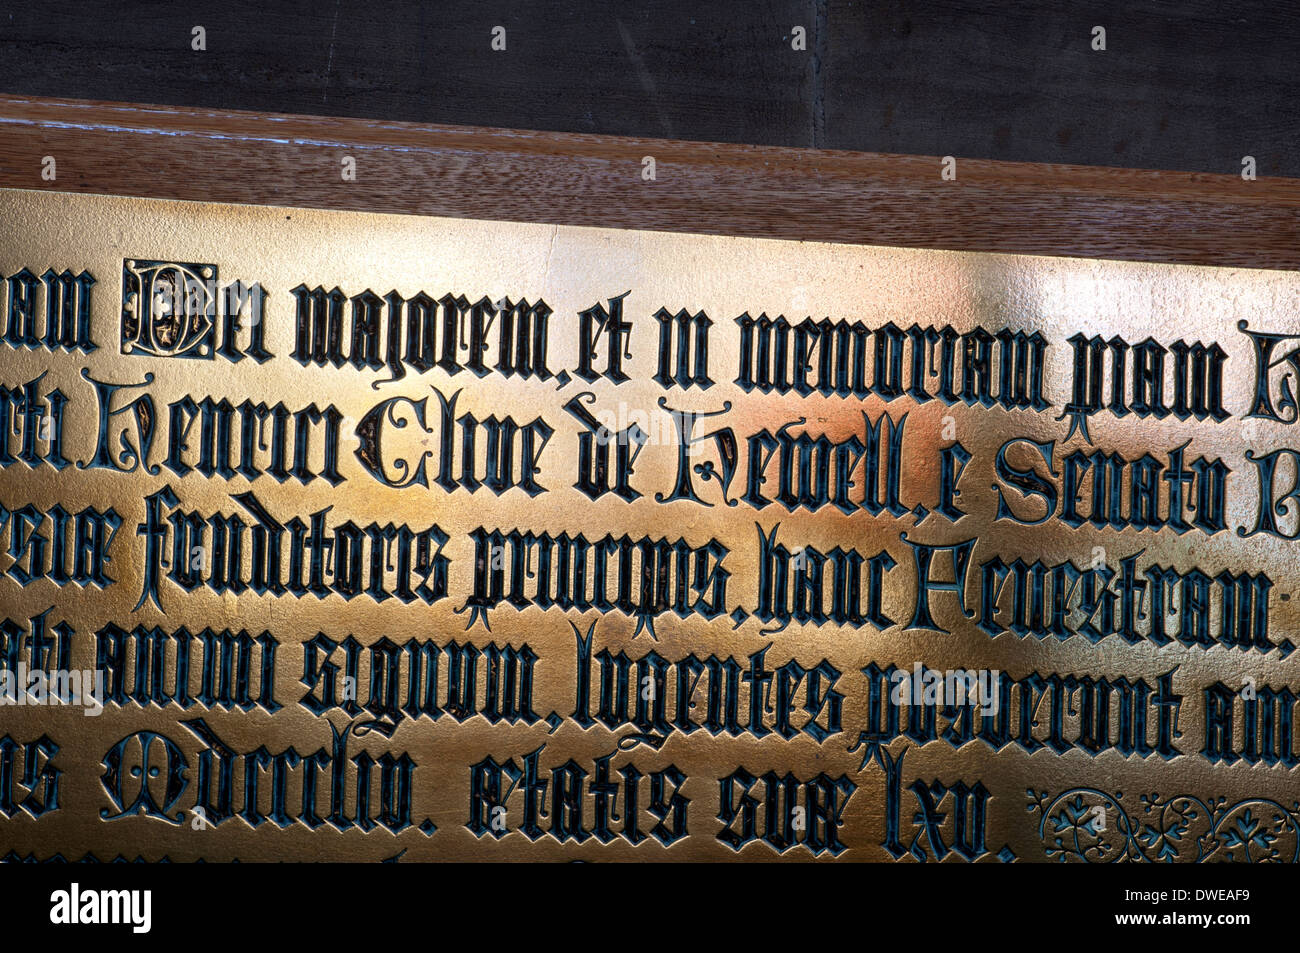 am Dei majorem, et in memoriam piam H
rti Henrici Clive de Hewell, e Senatu B
esiæ funditoris principis, hanc Fenestram,
ati animi signum, lugentes posuerunt am
is Mdcccliv. ætatis suæ lxv.
alamy stock photo
DWEAF9
www.alamy.com